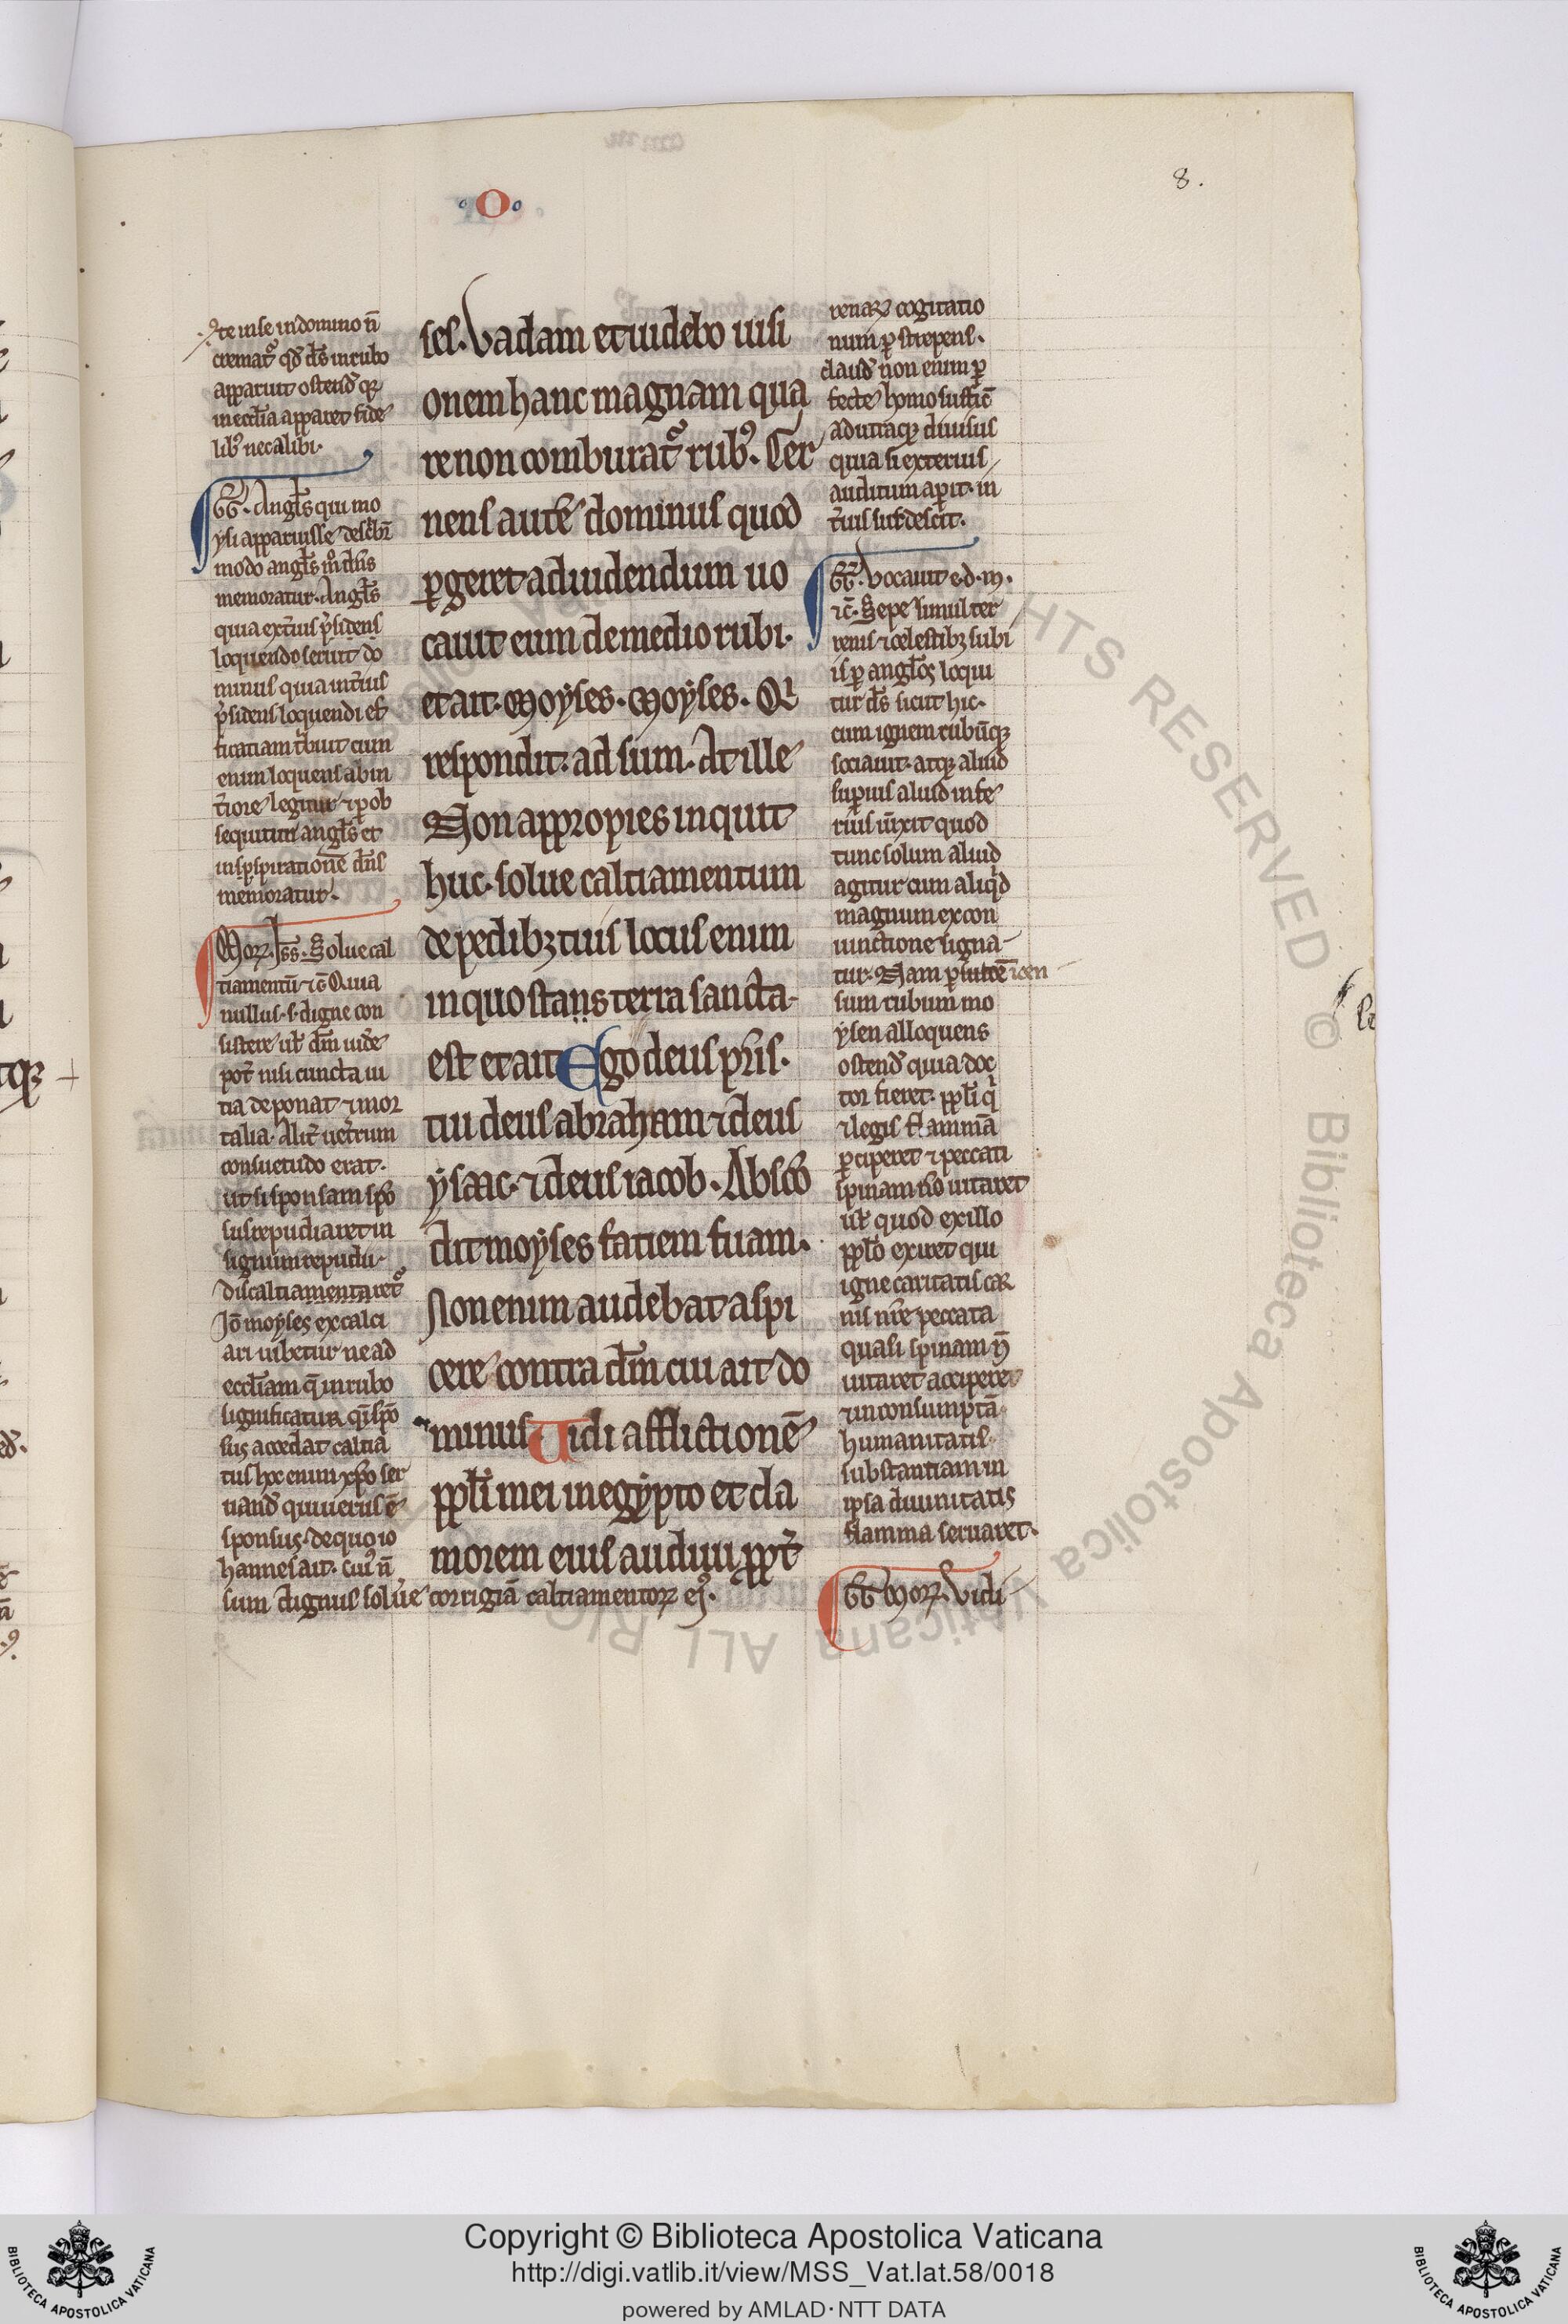 8.
O
ꝯte in se in domino n̄
cremat᷑ qd̕ d̄s in rubo
apparuit ostend̕ qꝫ
in eccl̄ia apparet fide
lib᷒ nec alibi.
GG. Angl̄s qui mo
ysi apparuisse desc̕br̄
modo angl̄s m̊ dn̄s
memoratur. Angl̄s
quia ext̄ius p̄sidens
loquendo seruit do
minus quia int̄ius
p̄sidens loquendi ef
ficatiam t̕buit cum
enim loquens ab in
t̄iore legitur ⁊ p̱ ob
sequitur angl̄s et
insp̱spirationē dn̄s
memoratur.
Moꝝ. Jss. Solue cal
ciamentū ⁊c̄ Quia
nullus .s. digne con
sistere ul̕ dm̄ uid̕e
pot̄ nisi cuncta ui
tia deponat ⁊ mor
talia. Alit̄ uet̄rum
consuetudo erat.
ut si sponsam spō
sus repudiaret in
signum repudii.
discalciamentaret᷑
Jō moyses excalci
ari iubetur ne ad
eccl̄iam q̄ in rubo
significatur q̄i spō
sus accedat calcia
tus hoc enim xp̄o ser
uand̕ qui uerus ē
sponsus. de quo io
hannes ait. cui᷒ n̄
sum dignus solu̕e corrigiā calciamentoꝝ ei᷒.
ses. Vadam et uidebo uisi
onem hanc magnam qua
re non comburat᷑ rub᷒. Cer
nens aute̅ dominus quod
ꝑgeret ad uidendum uo
cauit eum de medio rubi.
et ait. Moyses. Moyses. Qi
respondit. ad sum. At ille
Non appropies inquit
huc. solue calciamentum
de pedibꝫ tuis locus enim
in quo stans terra sancta
est et ait Ego deus pr̄is.
tui deus abraham ⁊ deus
ysaac. ⁊ deus iacob. Abscō
dit moyses faciem suam.
Non enim audebat aspi
cere contra dm̄ cui ait do
minus Uidi afflictionē
ppl̄i mei in egypto et cla
morem eius audiui ppt̄
renaꝝ cogitatio
num ꝑstrepens.
claud̕ non enim ꝑ
fecte homo suffic̄
ad utraqꝫ diuisus
quia si exterius
auditum aperit. in
t̄ius surdescit.
GG. Vocauit e. d. m.
⁊c̄. Sepe simul ter
renis ⁊ celestibꝫ subi
is ꝑ angl̄os loqui
tur d̄s sicut hic.
cum ignem rubūqꝫ
sociauit. atqꝫ aliud
suꝑius aliud infe
rius iūxit quod
tunc solum aliud
agitur cum aliq̇d
magnum ex con
iunctione signa
tur. Nam ꝑ succē⁊cen
sum rubum mo
ysen alloquens
ostend̕ quia doc
tor fieret. ppl̄i q̇
⁊ legis flammā
ꝑciperet ⁊ peccati
spinam nō uitaret
ul̕ quod ex illo
ppl̄o exiret qui
igne caritatis car
nis nr̄e peccata
quasi spinam n̄
uitaret accipere
⁊ inconsumptā
humanitatis
substantiam in
ipsa diuinitatis
flamma seruaret.
GG Moꝝ. Vidi
Copyright © Biblioteca Apostolica Vaticana
http://digi.vatlib.it/view/MSS_Vat.lat.58/0018
powered by AMLAD·NTT DATA